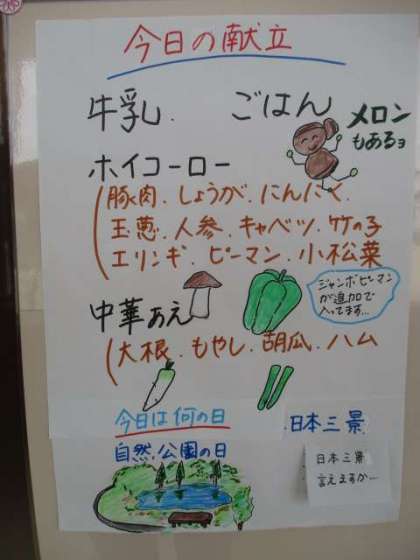 今日の献立
牛乳. ごはん
メロン
もあるョ
ホイコーロー
豚肉.しょうが.にんにく.
玉葱.人参.キャベツ.竹の子
エリンギ.ピーマン.小松菜
ジャンボピーマン
が追加で
入ってます…
中華あえ
大根.もやし.胡瓜.ハム
今日は何の日
日本三景
自然.公園の日
日本三景
言えますか…